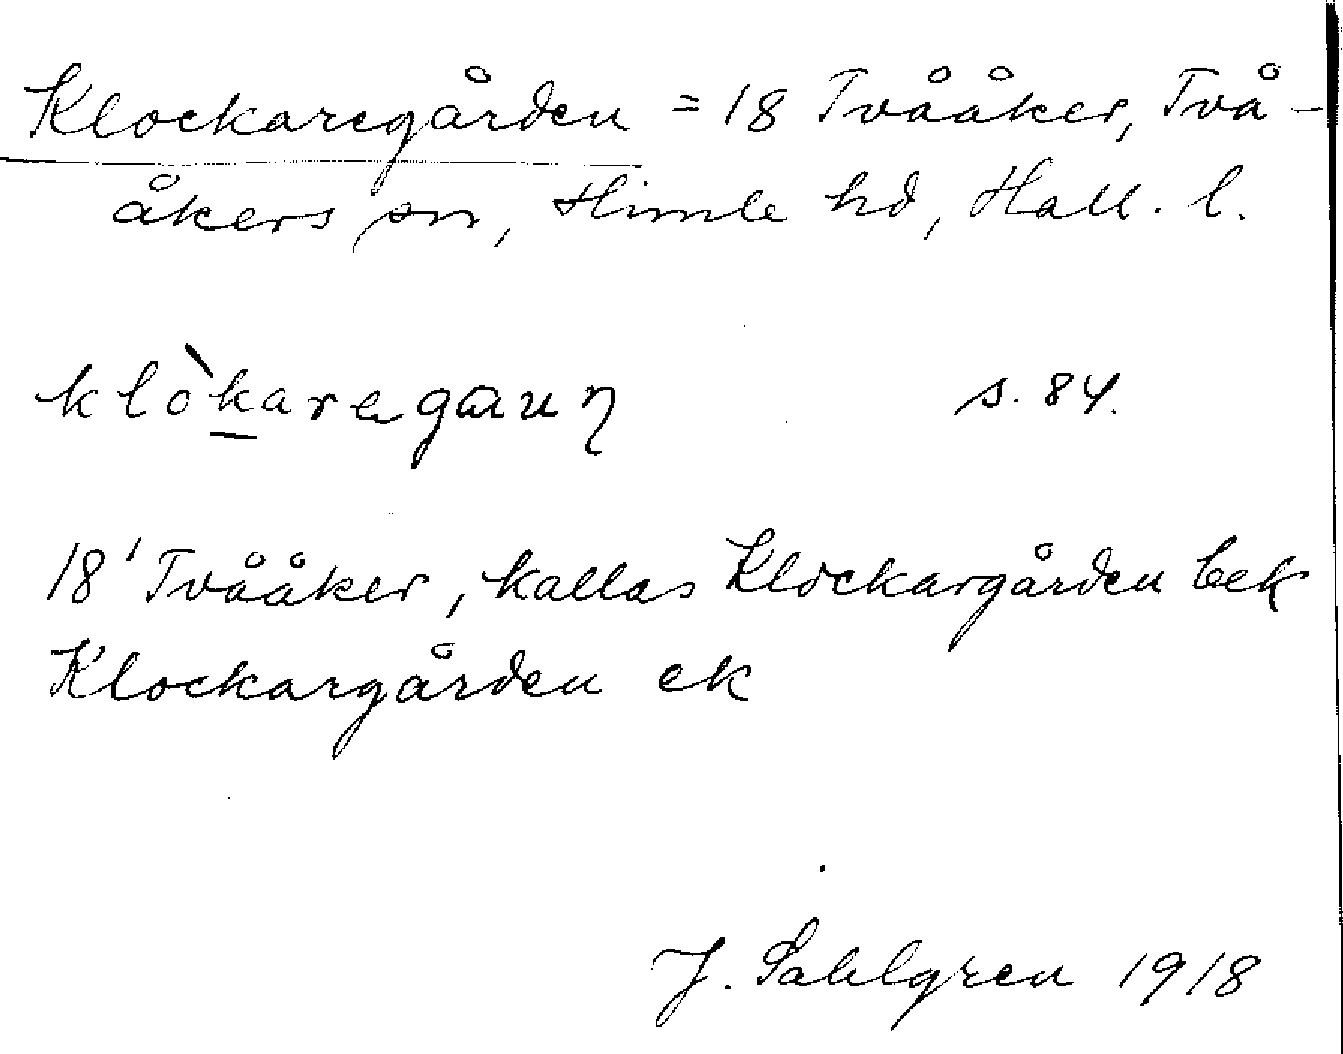 Klockaregården = 18 Tvååker, Två-
åkers sn, Himle hd, Hall. l.
klòkaregaun s. 84.
18¹ Tvååker, kallas Klockargården bek
Klockargården ek
J. Sahlgren 1918